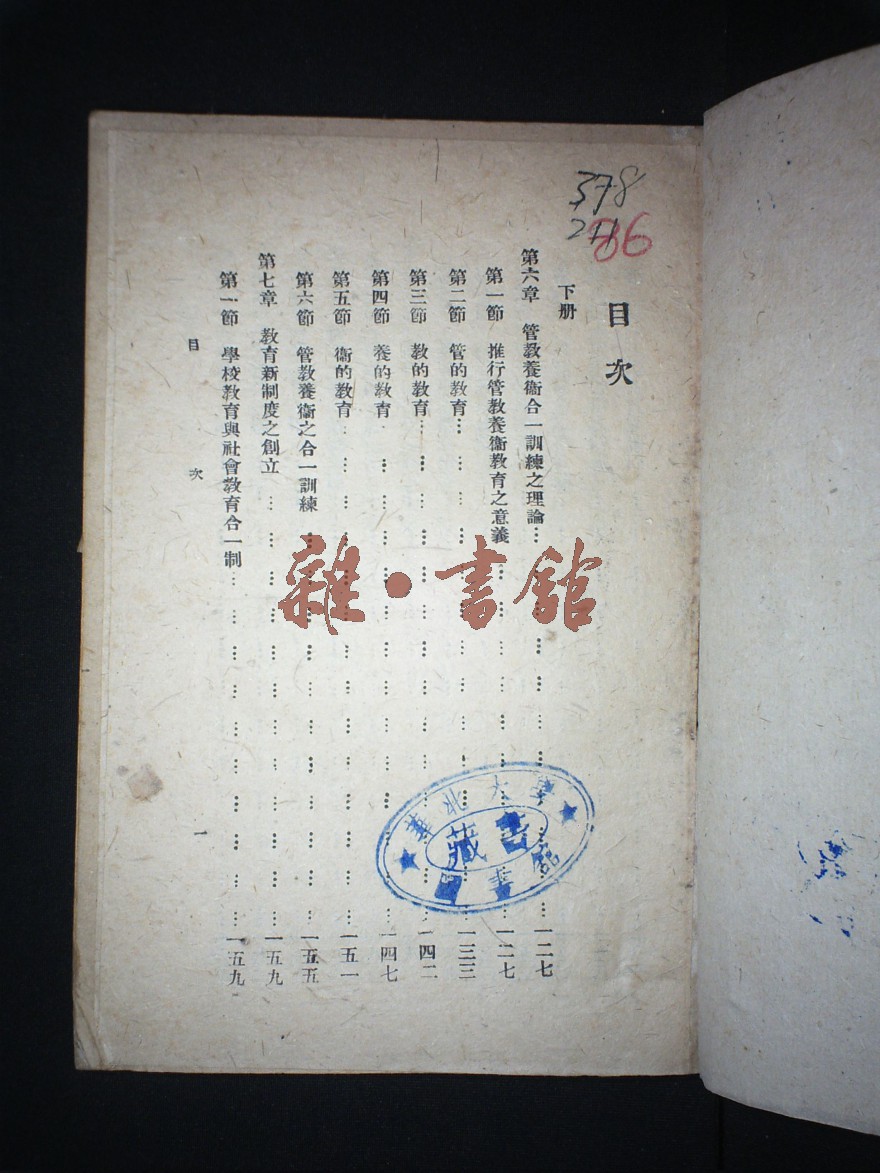 378
211
86
目次
下册
第六章 管教養衞合一訓練之理論………一二七
第一節 推行管教養衞教育之意義………一二七
第二節 管的教育………一三三
第三節 教的教育………一四二
第四節 養的教育………一四七
第五節 衞的教育………一五一
第六節 管教養衞之合一訓練………一五五
第七章 教育新制度之創立………一五九
第一節 學校教育與社會教育合一制………一五九
目次
一
雜·書館
華北大學
藏書
圖書館